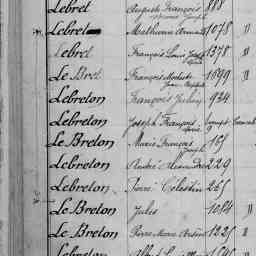 Lebret Auguste François 888
Marie Joseph
Lebret Mathurin Armand 1078 "
Lebret François Louis Joseph 1378 "
Le Bret François Modeste 1899 "
Jean Baptiste
Lebreton François Julien 934
Lebreton Joseph François
Le Breton Marie François 151
Joseph
Lebreton André Alexandre 229
Lebreton Pierre Célestin 265
Le Breton Jules 1014 "
Le Breton Pierre Marie 1225 "
Lebreton Albert